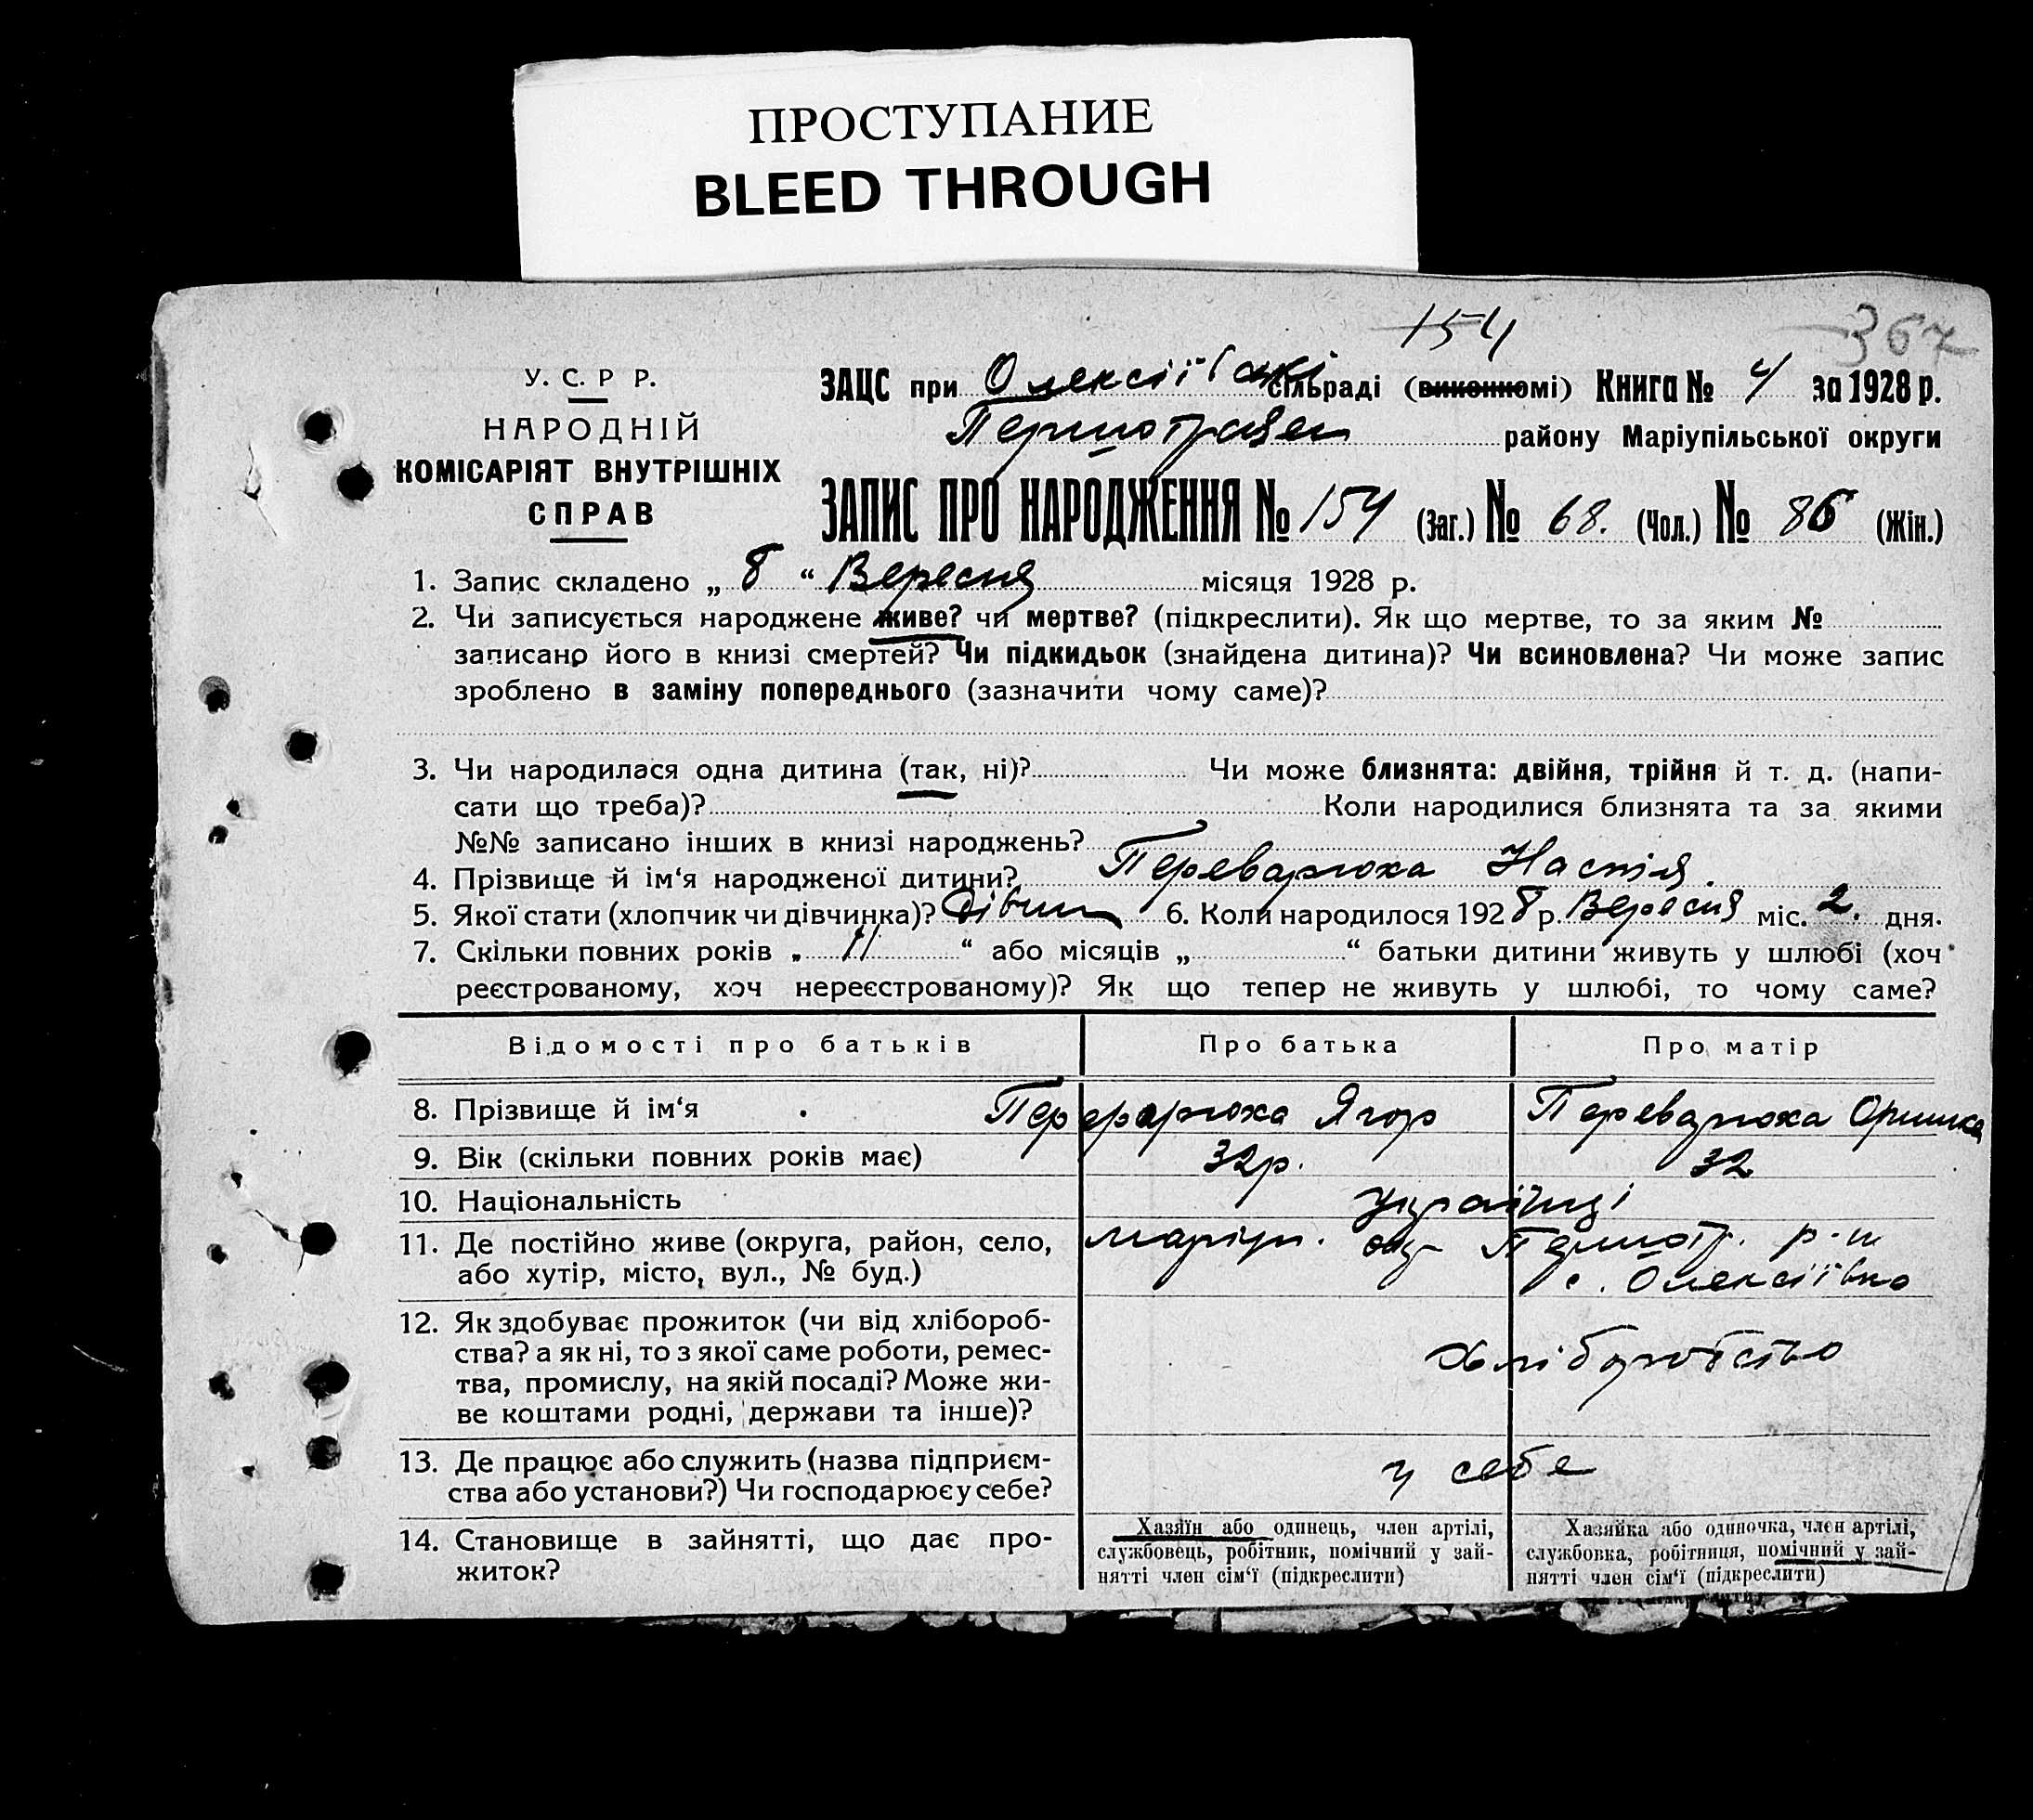 ПРОСТУПАНИЕ
BLEED THROUGH
154
367
У. С. Р Р.
НАРОДНІЙ
КОМІСАРІЯТ ВНУТРІШНІХ
СПРАВ
ЗАЦС при Олексіївські сільраді (виконкомі) Книга № 4 за 1928 р.
Першотравен району Маріупільської округи
ЗАПИС ПРО НАРОДЖЕННЯ № 154 (Заг.) № 68. (Чол.) № 86 (Жін.)
1. Запис складено „ 8 “ Вересня місяця 1928 р.
2. Чи записується народжене живе? чи мертве? (підкреслити). Як що мертве, то за яким №
записано його в книзі смертей? Чи підкидьок (знайдена дитина)? Чи всиновлена? Чи може запис
зроблено в заміну попереднього (зазначити чому саме)?
3. Чи народилася одна дитина (так, ні)? Чи може близнята: двійня, трійня й т. д. (напи-
сати що треба)? Коли народилися близнята та за якими
№№ записано інших в книзі народжень?
4. Прізвище й ім‘я народженої дитини? Переварюха Настя.
5. Якої стати (хлопчик чи дівчинка)? Дівчин 6. Коли народилося 1928 р. Вересня міс. 2. дня.
7. Скільки повних років „ 11 “ або місяців „ “ батьки дитини живуть у шлюбі (хоч
реєстрованому, хоч нереєстрованому)? Як що тепер не живуть у шлюбі, то чому саме?
Відомості про батьків Про батька Про матір
8. Прізвище й ім‘я Переварюха Ягор Переварюха Оришка
9. Вік (скільки повних років має) 32р. 32
10. Національність Українці
11. Де постійно живе (округа, район, село, Маріуп. окр Першотр. р-н
або хутір, місто, вул., № буд.) с. Олексіївка
12. Як здобуває прожиток (чи від хлібороб-
ства? а як ні, то з якої саме роботи, ремес- Хліборобство
тва, промислу, на якій посаді? Може жи-
ве коштами родні, держави та інше)?
13. Де працює або служить (назва підприєм- у себе
ства або установи?) Чи господарює у себе?
14. Становище в зайнятті, що дає про-
житок?
Хазяїн або одинець, член артілі,
службовець, робітник, помічний у зай-
нятті член сім‘ї (підкреслити)
Хазяйка або одиночка, член артілі,
службовка, робітниця, помічний у зай-
нятті член сім‘ї (підкреслити)